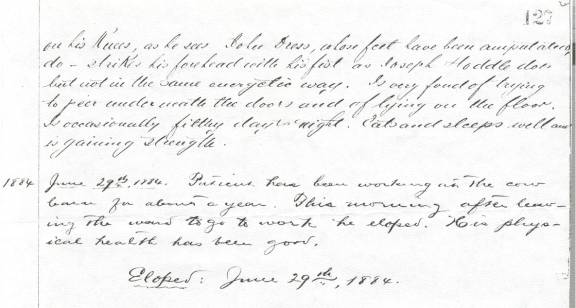 127
on his Knees, as he sees John Dress, whose feet have been amputated,
do – strikes his forehead with his fist as Joseph Hoddle does
but not in the same energetic way. Is very fond of trying
to peer underneath the doors and of lying on the floor.
Is occasionally filthy day & night. Eats and sleeps well and
is gaining strength.
1884 June 29th, 1884. Patient has been working in the cow
barn for about a year. This morning after leav-
ing the ward to go to work he eloped. His phys-
ical health has been good.
Eloped: June 29th, 1884.